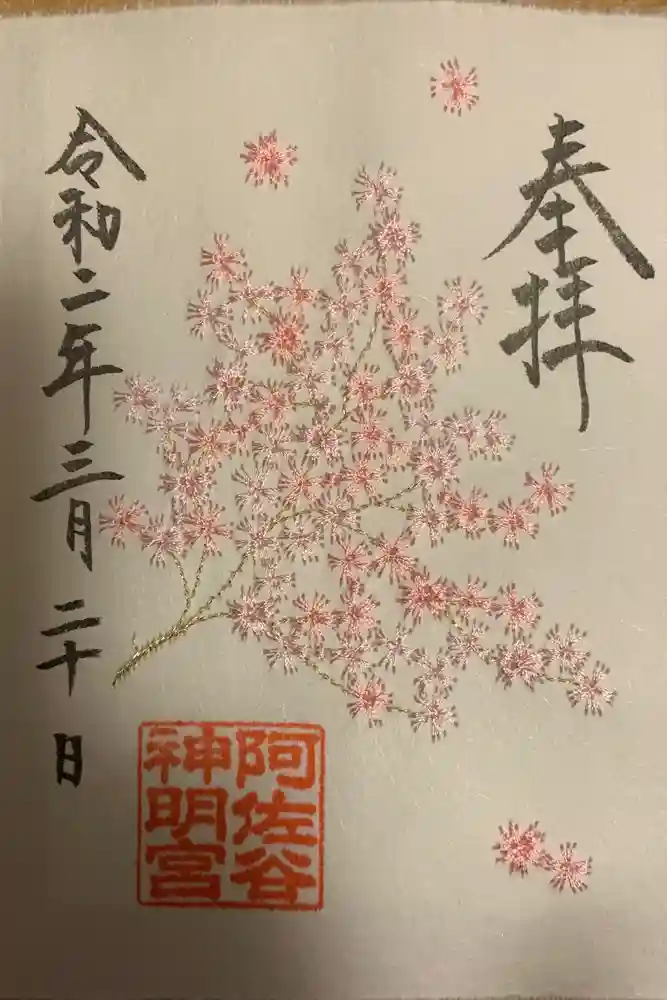 奉拝
令和二年三月二十日
阿佐谷
神明宮